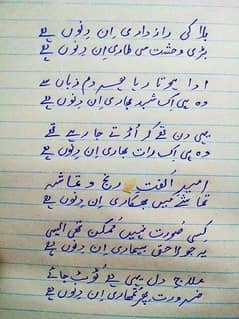 بلا کی رازداری اِن دِنوں ہے
بڑی وحشت سی طاری اِن دِنوں ہے
ادا ہوتا رہا جو دم زباں سے
وہ ہی اک شہد بھاری اِن دِنوں ہے
یہی دن تھے کہ اُڑتے جا رہے تھے
وہ ہی اک رات بھاری اِن دِنوں ہے
امیرِ اُلفت رنج و تماشہ
بھکاری اِن دِنوں ہے
کسی صُورت نہیں مُمکن تھی ایسی
یہ جو لاحق بیماری اِن دِنوں ہے
علاجِ دل یہی ہے ٹُوٹ جائے
ضرورت پھر تمھاری اِن دِنوں ہے